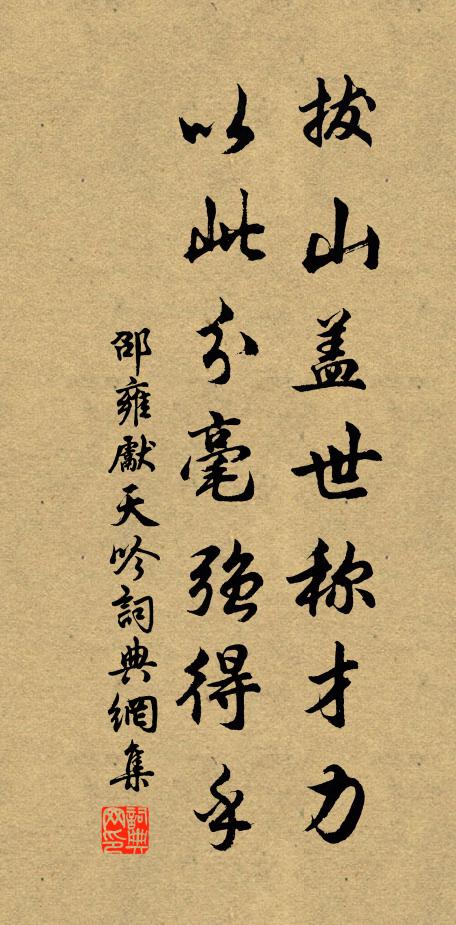 拔山盖世称才力
以此分毫强得乎
邵雍獻天吟詞典網集
詞典網印